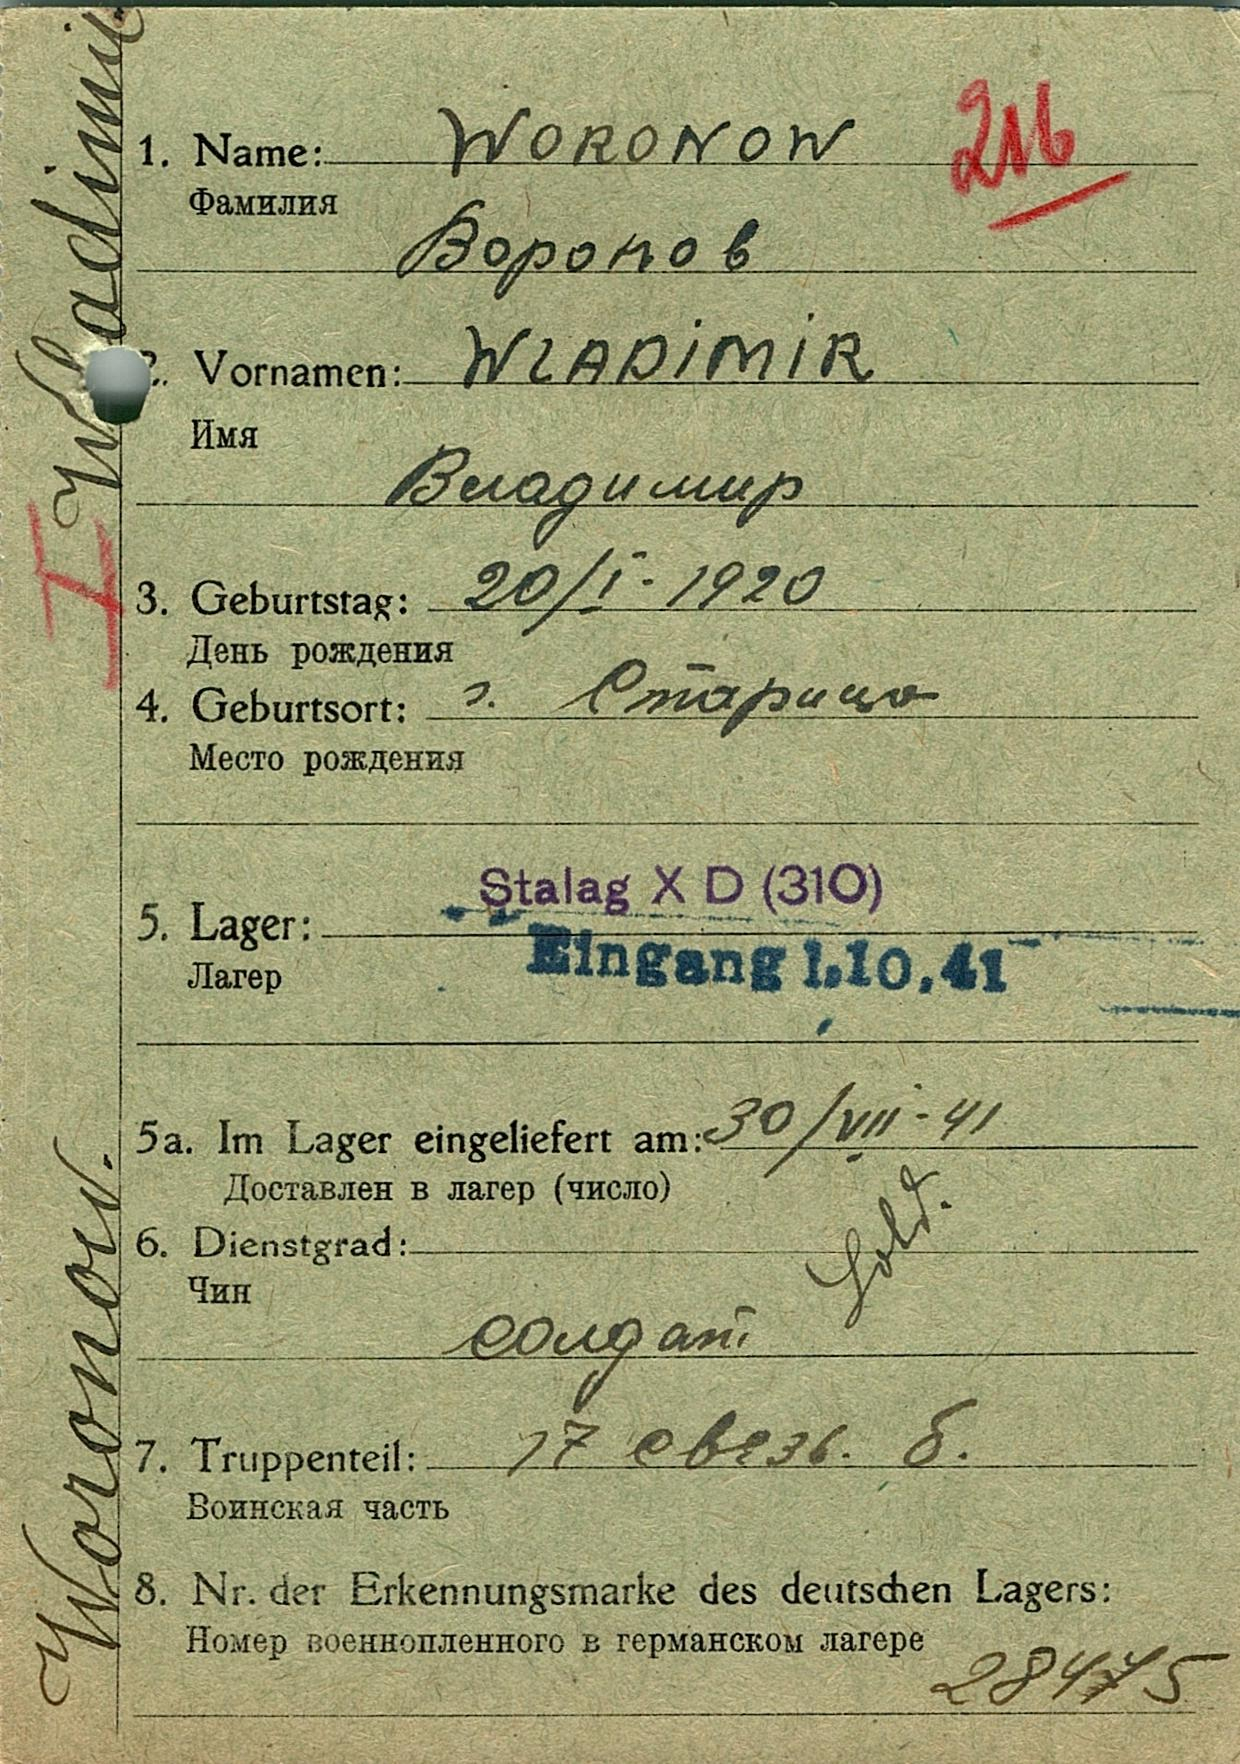 1. Name: WORONOW
216
Фамилия
Воронов
2. Vornamen: WLADIMIR
Имя
Владимир
I
3. Geburtstag: 20/I. 1920
День рождения
4. Geburtsort: г. Старица
Место рождения
Stalag X D (310)
5. Lager: Eingang 1.10.41
Лагер
5a. Im Lager eingeliefert am: 30/VII-41
Доставлен в лагер (число)
6. Dienstgrad: Sold.
Чин
солдат
7. Truppenteil: 17 связ. б.
Воинская часть
8. Nr. der Erkennungsmarke des deutschen Lagers:
Номер военнопленного в германском лагере
Woronow. Wladimir.